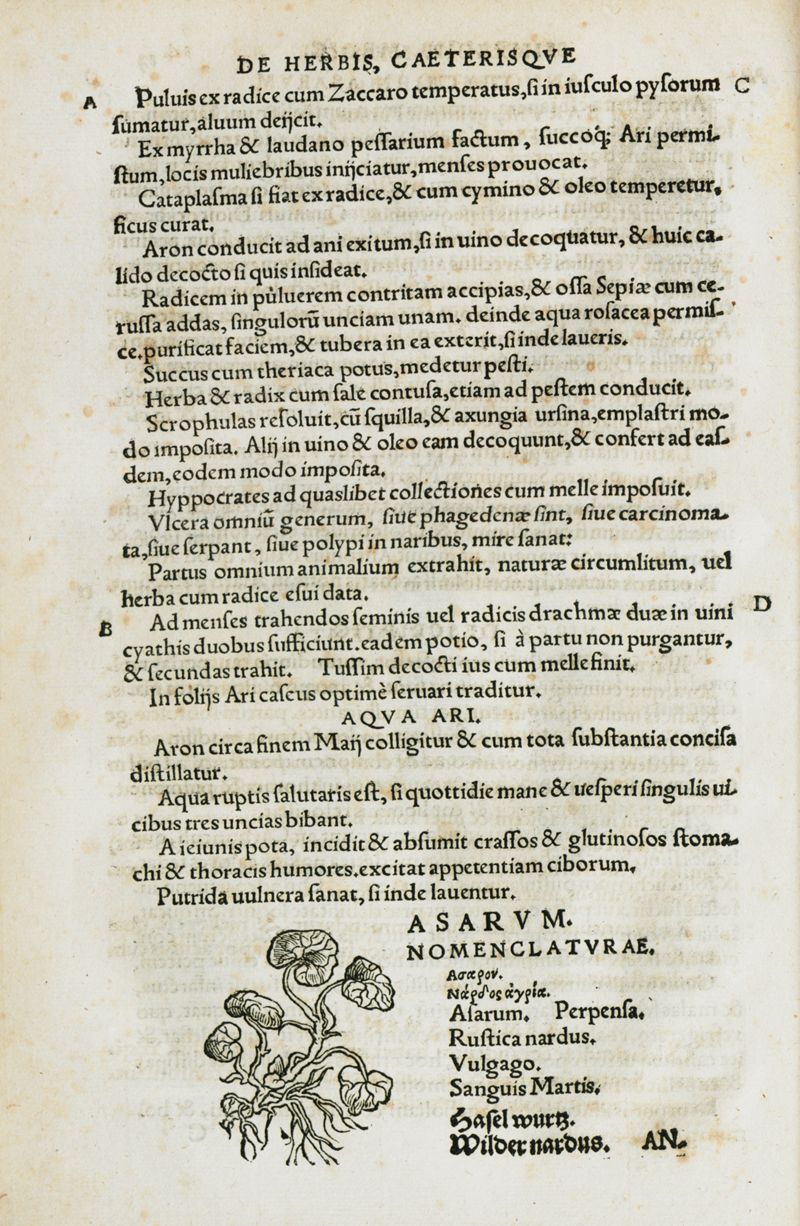 DE HERBIS, CAETERISQVE
A Puluis ex radice cum Zaccaro temperatus, si in iusculo pysorum C
ſumatur, aluum deijcit.
Ex myrrha & laudano peſſarium factum, ſuccoq; Ari permi-
ſtum, locis muliebribus inijciatur, menſes prouocat.
Cataplaſma ſi fiat ex radice, & cum cymino & oleo temperetur,
ficus curat.
Aron conducit ad ani exitum, ſi in uino decoquatur, & huic ca-
lido decocto ſi quis inſideat.
Radicem in puluerem contritam accipias, & oſſa Sepiæ cum ce-
ruſſa addas, ſingulorũ unciam unam. deinde aqua roſacea permiſ-
ce. purificat faciem, & tubera in ea exterit, ſi inde laueris.
Succus cum theriaca potus, medetur peſti.
Herba & radix cum ſale contuſa, etiam ad peſtem conducit.
Scrophulas reſoluit, cũ ſquilla, & axungia urſina, emplaſtri mo-
do impoſita. Alij in uino & oleo eam decoquunt, & confert ad eaſ-
dem, eodem modo impoſita.
Hyppocrates ad quaslibet collectiones cum melle impoſuit.
Vlcera omniũ generum, ſiue phagedenæ ſint, ſiue carcinoma-
ta, ſiue ſerpant, ſiue polypi in naribus, mire ſanat:
Partus omnium animalium extrahit, naturæ circumlitum, uel
herba cum radice eſui data.
B Ad menſes trahendos ſeminis uel radicis drachmæ duæ in uini D
cyathis duobus ſufficiunt. eadem potio, ſi à partu non purgantur,
& ſecundas trahit. Tuſſim decocti ius cum melle finit.
In folijs Ari caſeus optimè ſeruari traditur.
AQVA ARI.
Aron circa finem Maij colligitur & cum tota ſubſtantia conciſa
diſtillatur.
Aqua ruptis ſalutaris eſt, ſi quottidie mane & ueſperi ſingulis ui-
cibus tres uncias bibant.
A ieiunis pota, incidit & abſumit craſſos & glutinoſos ſtoma-
chi & thoracis humores. excitat appetentiam ciborum,
Putrida uulnera ſanat, ſi inde lauentur.
ASARVM.
NOMENCLATVRAE.
Ασαρον.
Νάρδος ἀγρία.
Aſarum. Perpenſa.
Ruſtica nardus.
Vulgago.
Sanguis Martis.
Haſel wurtz.
Wilder nardus. AN-